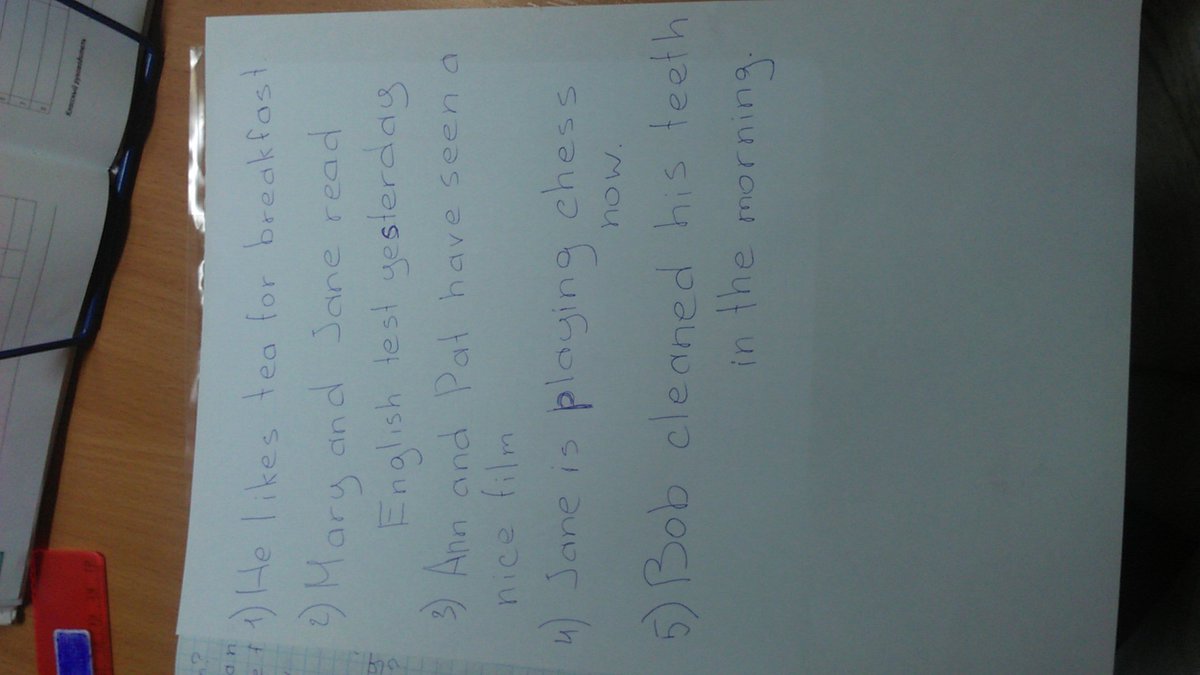 1) He likes tea for breakfast.
2) Mary and Jane read
English test yesterday
3) Ann and Pat have seen a
nice film
4) Jane is playing chess
now.
5) Bob cleaned his teeth
in the morning.
Классный руководитель